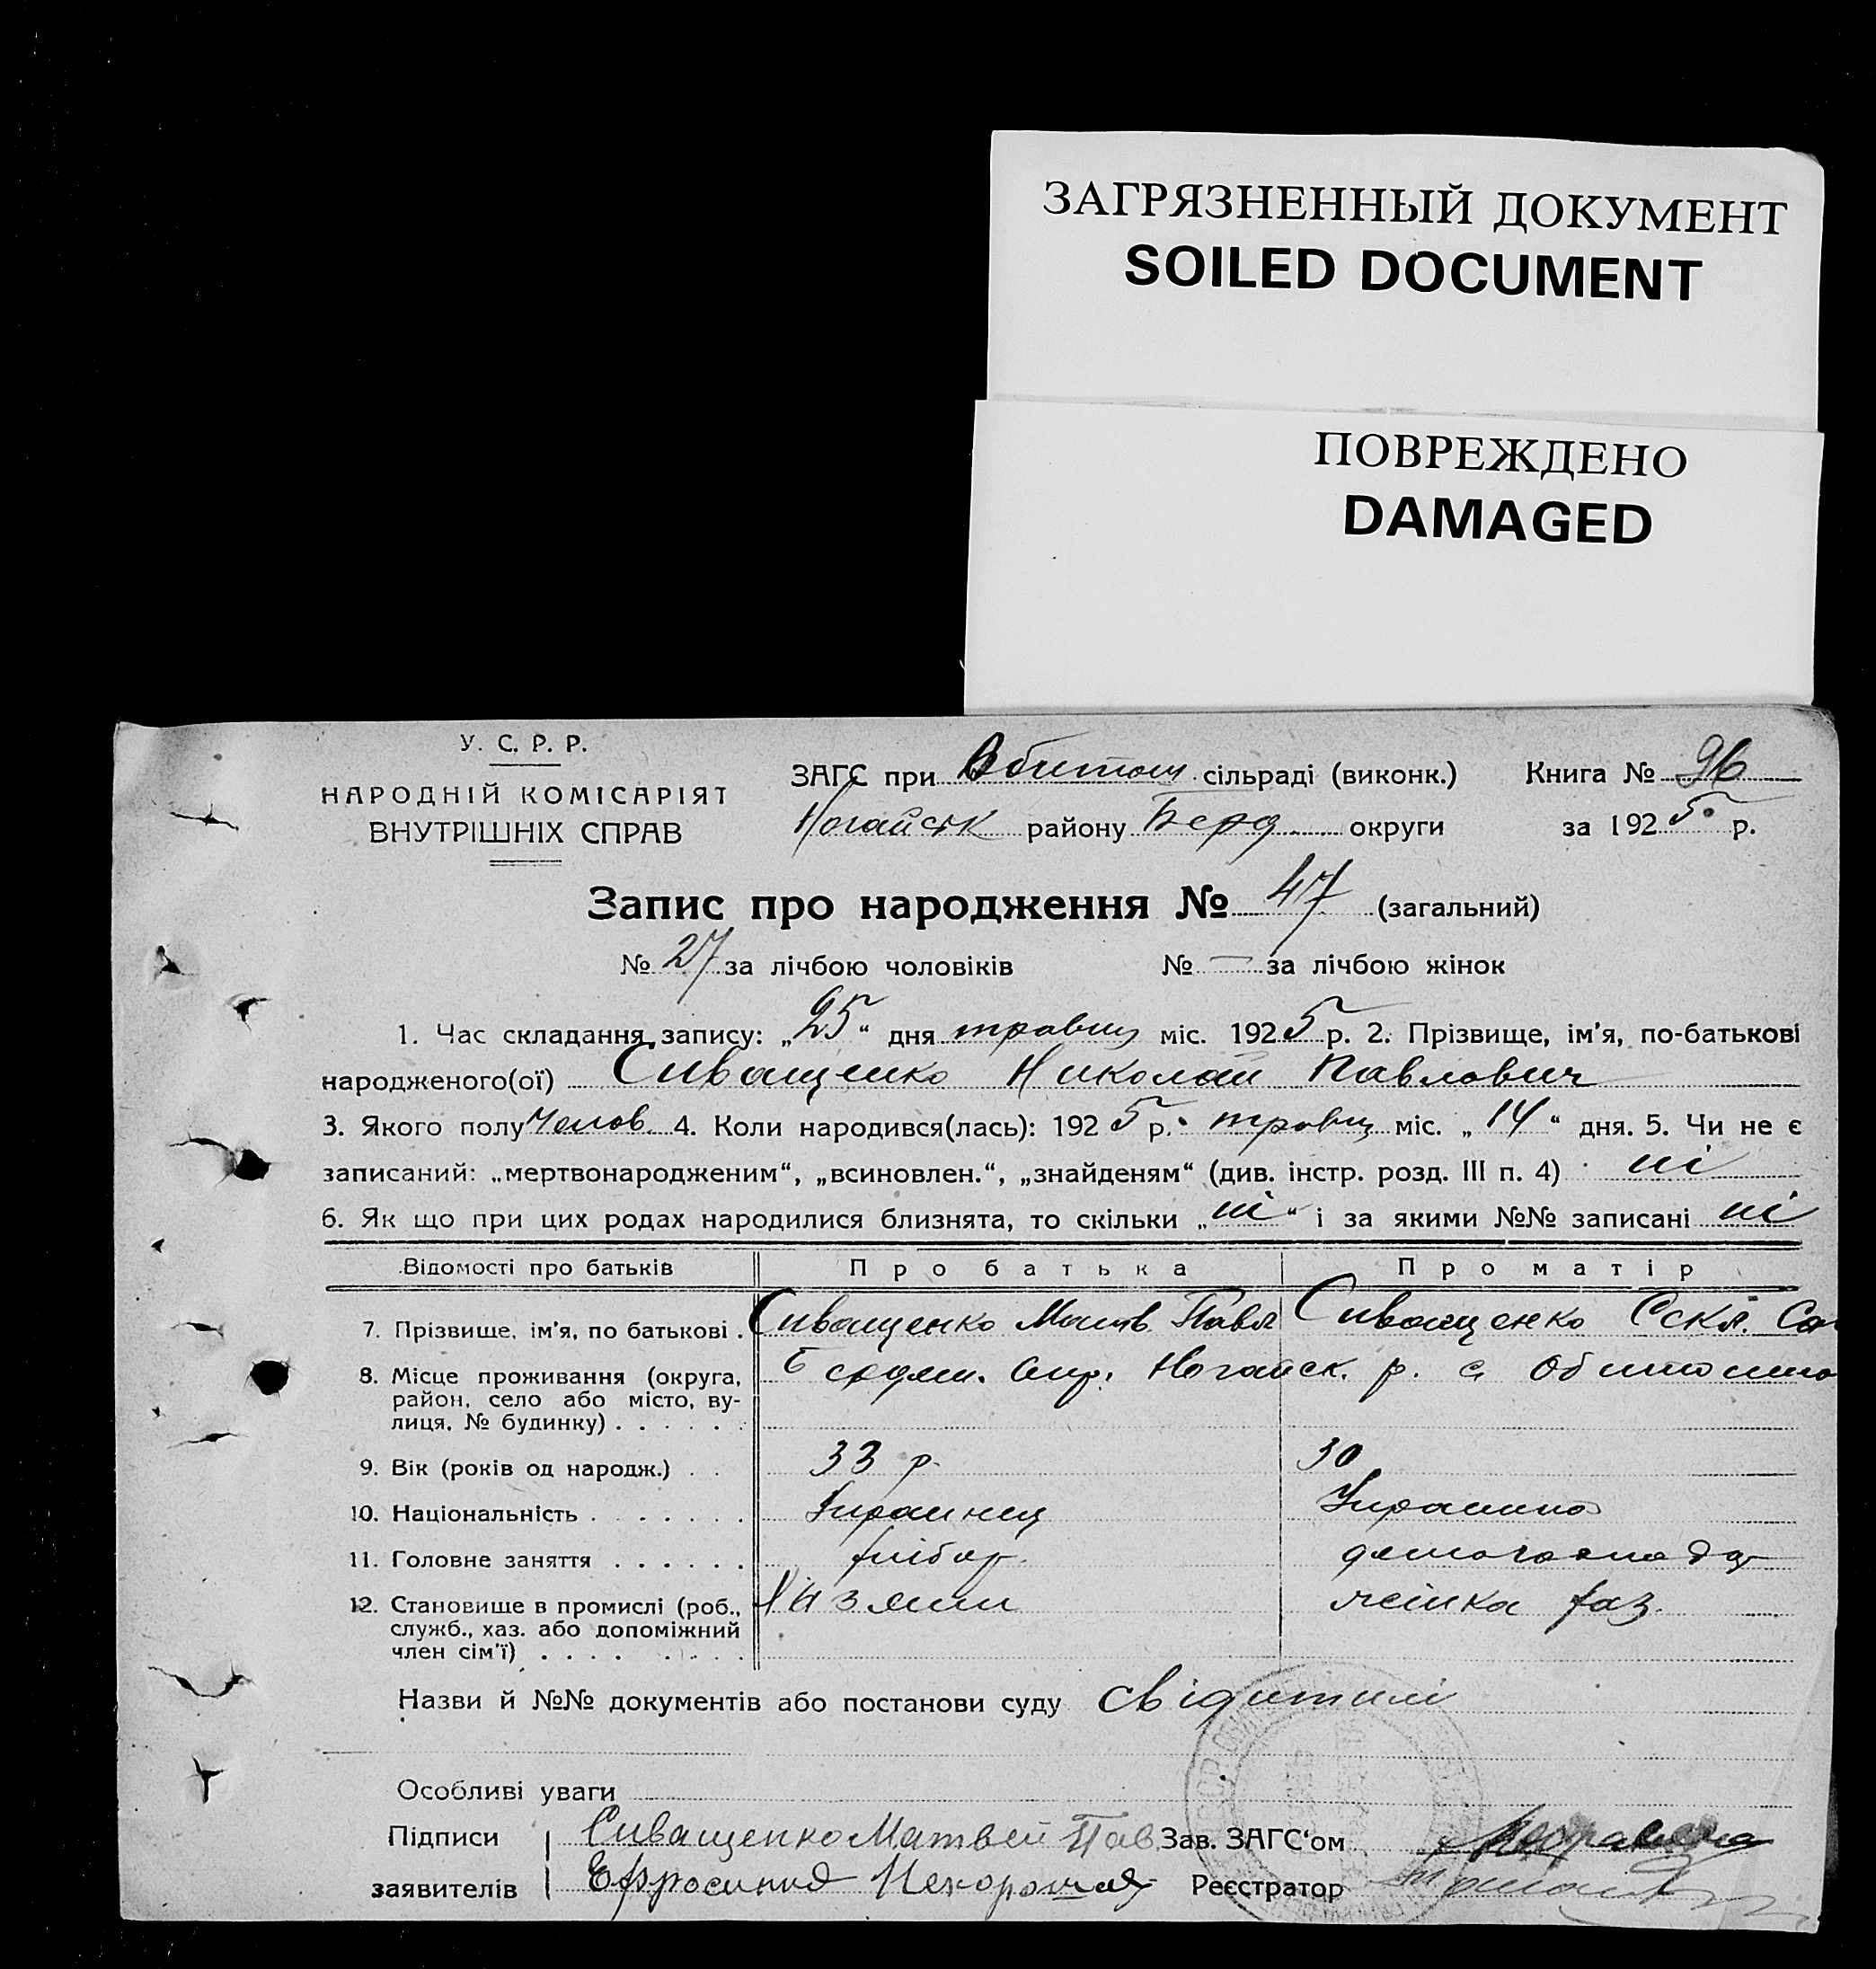 ЗАГРЯЗНЕННЫЙ ДОКУМЕНТ
SOILED DOCUMENT
ПОВРЕЖДЕНО
DAMAGED
У. С. Р. Р.
НАРОДНІЙ КОМІСАРІЯТ
ВНУТРІШНІХ СПРАВ
ЗАГС при сільраді (виконк.) Книга № 96
Ногайськ району Берд округи за 1925 р.
Запис про народження № 47 (загальний)
№ 27 за лічбою чоловіків № — за лічбою жінок
1. Час складання запису: „25“ дня травня міс. 1925 р. 2. Прізвище, ім'я, по-батькові
народженого(ої) Сиващенко Николай Павлович
3. Якого полу Челов. 4. Коли народився(лась): 1925 р. травня міс. „14“ дня. 5. Чи не є
записаний: „мертвонародженим“, „всиновлен.“, „знайденям“ (див. інстр. розд. III п. 4) ні
6. Як що при цих родах народилися близнята, то скільки „ні“ і за якими №№ записані ні
Відомості про батьків Про батька Про матір
7. Прізвище, ім'я, по батькові . Сиващенко Матв. Павл Сиващенко
8. Місце проживання (округа, Бердян. окр. Ногайск. р. с. Обиточна
район, село або місто, ву-
лиця, № будинку) . . . . . .
9. Вік (років од народж.) . . 33 р. 30
10. Національність . . . . . . . Украинец Украинка
11. Головне заняття . . . . . .
12. Становище в промислі (роб., Хазяин
служб., хаз. або допоміжний
член сім'ї) . . . . . . . .
Назви й №№ документів або постанови суду свідитилі
Особливі уваги
Підписи Сиващенко Матвей Пав. Зав. ЗАГС'ом
заявителів Ефросиния Нехорошая Реєстратор